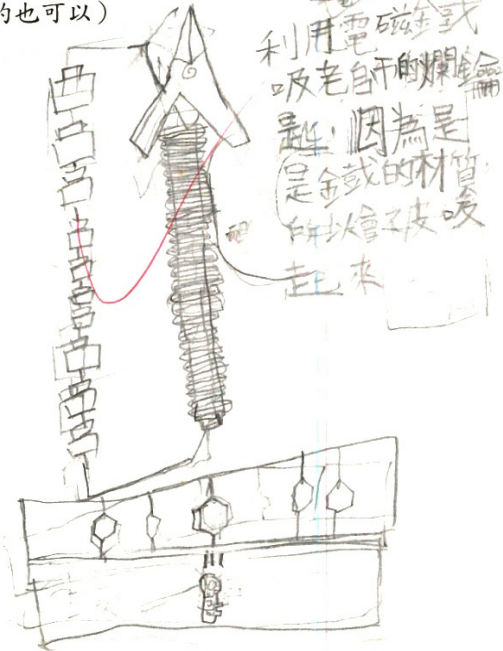 的也可以）
利用電磁鐵
吸老師的爛鑰
是 因為是
是鐵的材質
所以會被吸
起來